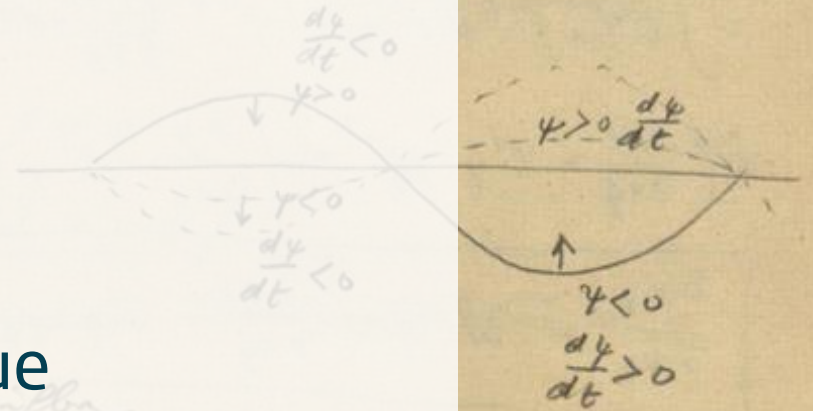 dψ/dt < 0
ψ > 0
ψ > 0 dψ/dt
ψ < 0
dψ/dt < 0
ψ < 0
dψ/dt > 0
ue